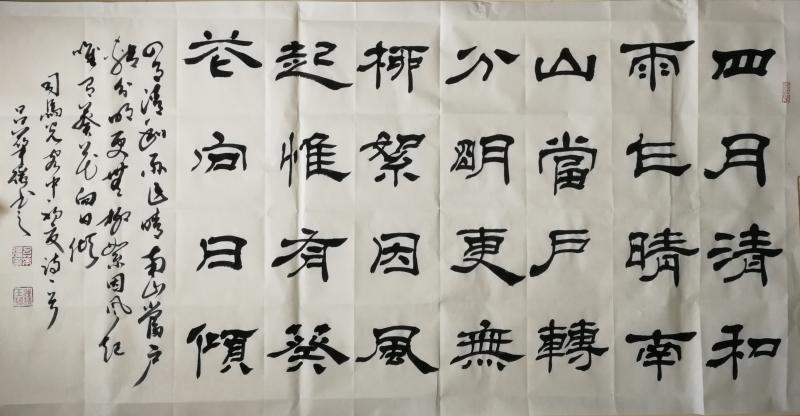 四月清和
雨乍晴南
山當戶轉
分明更無
柳絮因風
起惟有葵
花向日傾
四月清和雨乍晴南山當戶
轉分明更無柳絮因風起
唯有葵花向日傾
司馬光客中初夏詩一首